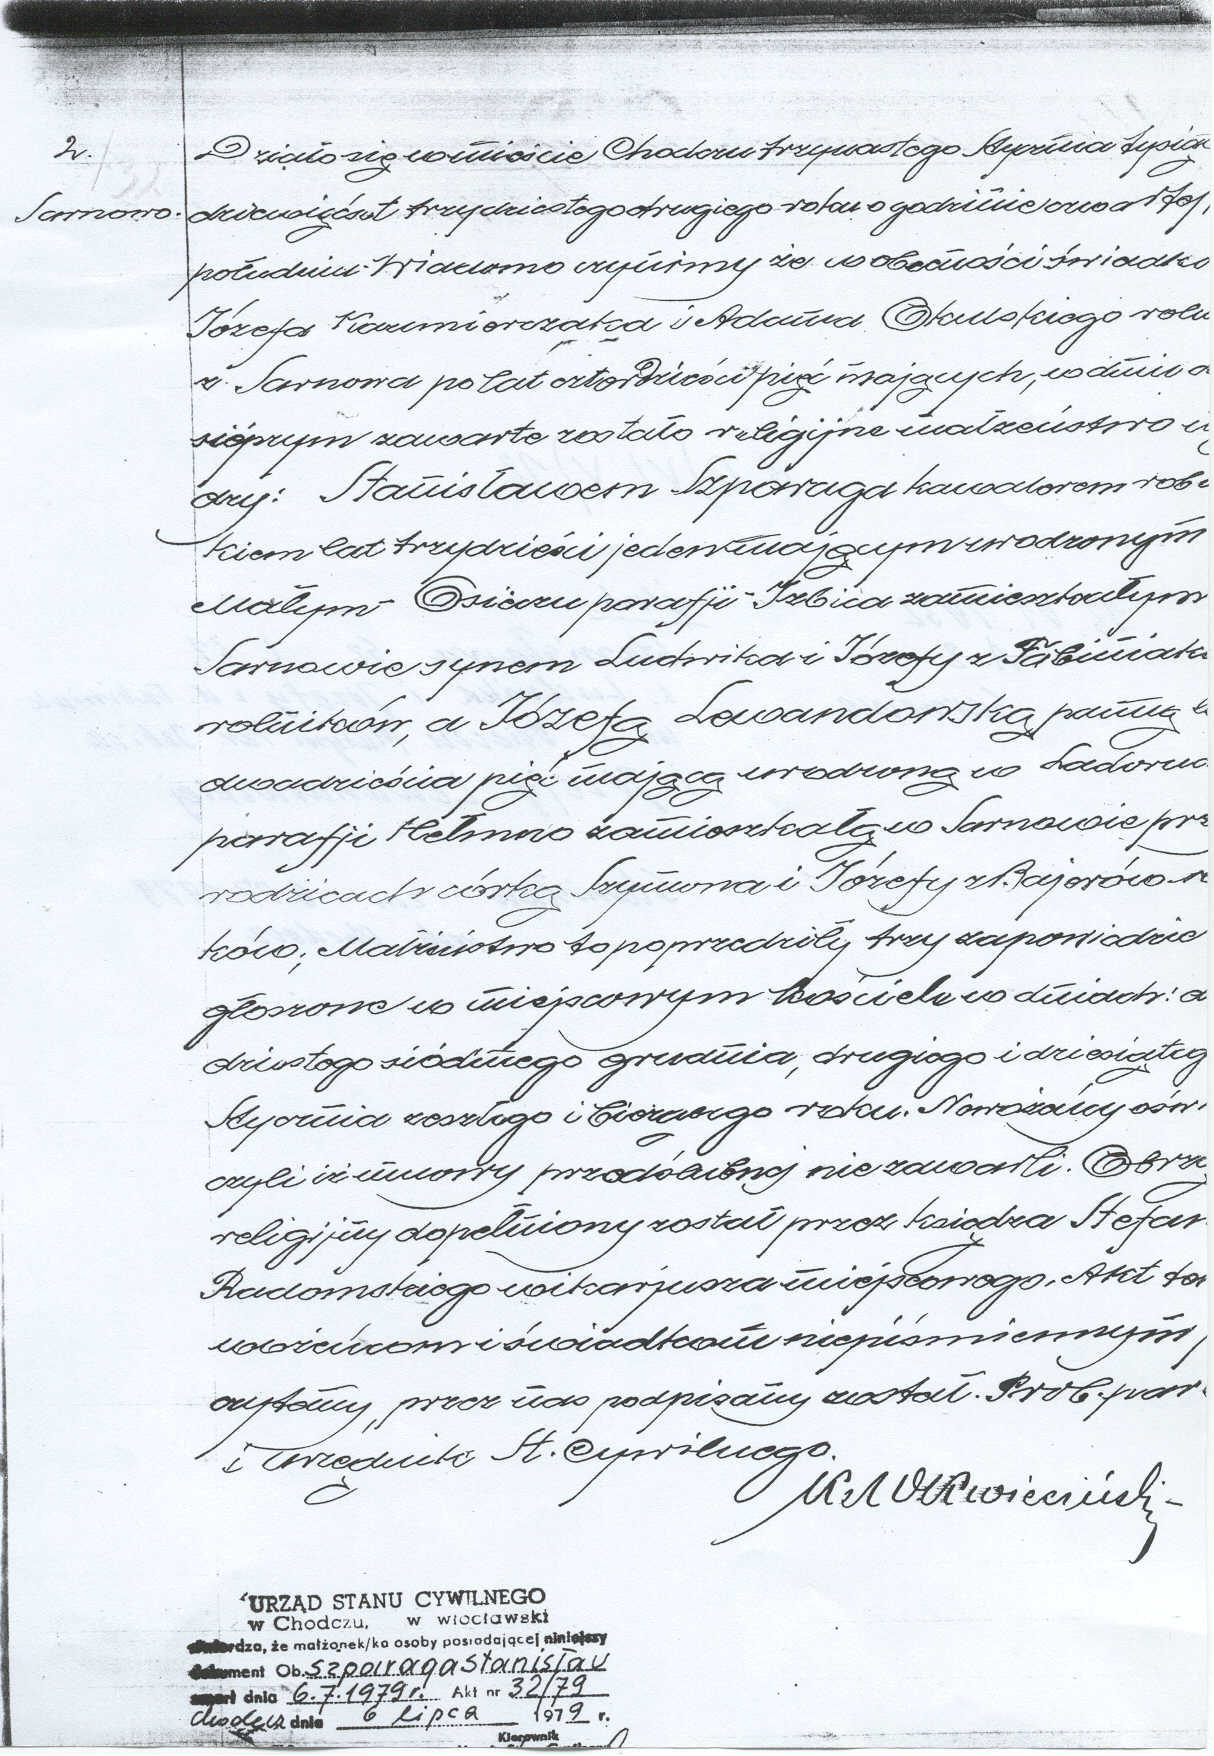 2.
Sarnowo.
Działo się w mieście Chodczu trzynastego Stycznia tysiąc
dziewięćset trzydziestego drugiego roku o godzinie czwartej,
południu. Wiadomo czynimy że w obecności świadkó
Józefa Kazmierczaka i Adama Okulskiego rolni
z Sarnowa po lat czterdzieści pięć mających, w dniu
siejszym zawarte zostało religijne małżeństwo
dzy: Stanisławem Szparaga kawalerem robo
kiem lat trzydzieści jeden mającym urodzonym
Małym Osieczu parafji Izbica zamieszkałym
Sarnowie synem Ludwika i Józefy z Fabiniak
rolników, a Józefą Lewandowską panną
dwadzieścia pięć mającą urodzoną w Ladoru
parafji Hełmno zamieszkałą w Sarnowie prz
rodzicach córką Szymona i Józefy z Bajerów
ków; Małżeństwo to poprzedziły trzy zapowiedzie
głoszone w miejscowym kościele w dniach: d
dziestego siódmego grudnia, drugiego i dziesiąteg
Stycznia zeszłego i bieżącego roku. Nowożeńcy ośw
czyli iż umowy przedślubnej nie zawarli. Obrzę
religijny dopełniony został przez księdza Stefan
Radomskiego wikarjusza miejscowego. Akt ten
wożeńcom i świadkom niepiśmiennym
czytany, przez nas podpisany został. Prob. par
i Urzędnik St. Cywilnego.
Kwieciński
URZĄD STANU CYWILNEGO
w Chodczu, w włocławski
dza, że małżonek/ka osoby posiadającej niniejszy
dokument Ob. Szparaga Stanisław
zmarł dnia 6.7.1979r. Akt nr 32/79
Chodecz dnia 6 lipca 1979 r.
Kierownik